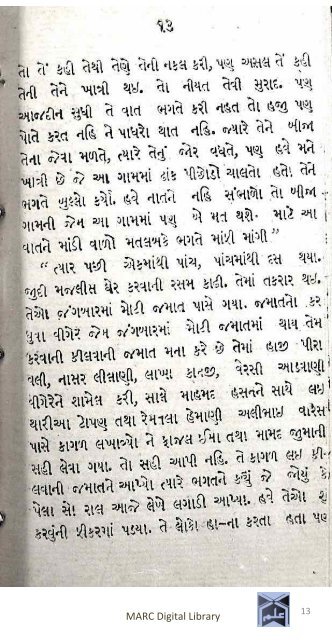 ૧૩
તો તેં કહી તેથી તેણે તેની નકલ કરી, પણ અસલ તેં કહી
તેની તેને ખાત્રી થઇ. તો નીયત તેવી મુરાદ. પણ
આજદીન સુધી તે વાત ભગતે કરી નહત તો હજી પણ
પોતે કરત નહિ ને પાધરો થાત નહિ. જ્યારે તેને બીજા
તેના જેવા મળતે, ત્યારે તેનું જોર વધતે, પણ હવે મને
ખાત્રી છે જે આ ગામમાં ઢાંક પીછોડો ચાલતો હતો તેને
ભગતે ખુલ્લો કર્યો. હવે નાતને નહિ સંભાળો તો બીજા
ગામની જેમ આ ગામમાં પણ બે મત થશે. માટે આ
વાતને માંડી વાળો મતલબકે ભગતે માફી માંગી”
“ ત્યાર પછી એકમાંથી પાંચ, પાંચમાંથી દસ થયા.
જુદી મજલીસ ઘેર કરવાની રસમ કાઢી. તેમાં તકરાર થઇ.
તેઓ જંગબારમાં મોટી જમાત પાસે ગયા. જમાતનો કર
ધુવા વીગેરે જેમ જંગબારમાં મોટી જમાતમાં થાય તેમ
કરવાની કીલવાની જમાત મના કરે છે તેમાં હાજી પીરા
વલી, નાસર લીલાણી, લાખા કાનજી, વેરસી આડવાણી
વીગેરેને શામેલ કરી, સાથે માહમદ હસનને સાથે લઇ
થારીઆ ટોપણ તથા રેમતલા હેમાણી અલીભાઇ વારસ
પાસે કાગળ લખાવ્યો ને ફાજલ ઈમા તથા મામદ જુમાની
સહી લેવા ગયા. તો સહી આપી નહિ. તે કાગળ લઇ કી-
લવાની જમાતને આપ્યો ત્યારે ભગતને કહ્યું જે જોયું કે
પેલા સો રાલ આજે લેખે લગાડી આપ્યા. હવે તેઓ
કરવુંની ફીકરમાં પડયા. તે લોકો હા–ના કરતા હતા પણ
MARC Digital Library
علم
13